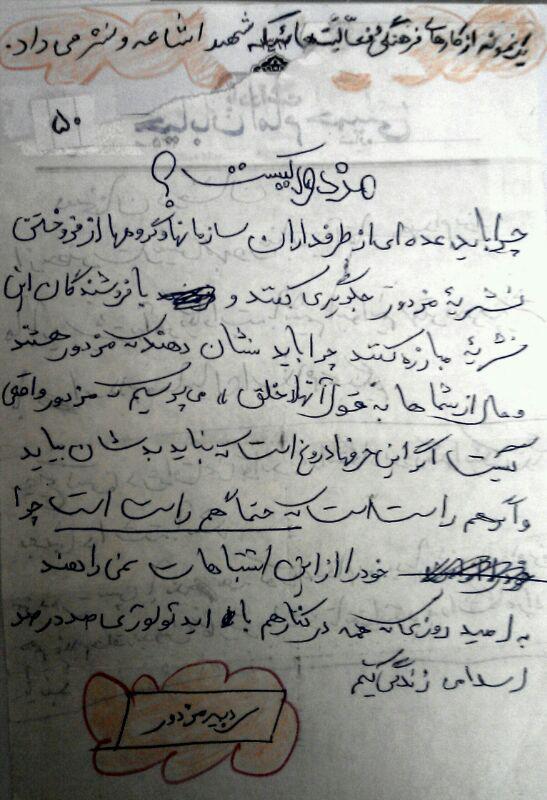 یک نمونه از کارهای فرهنگی و فعالیتهائیکه شهید اشاعه و نشر می داد.
۵۰
مزدور کیست ؟
چرا باید عده ای از طرفداران سازمانها و گروهها از فروختن
نشریهٔ مزدور جلوگیری کنند و با فروشندگان این
نشریه مبارزه کنند چرا باید نشان دهند که مزدور هستند
و حال از شما ها به قول آنها "خلق" می پرسیم که مزدور واقعی
کیست اگر این حرفها دروغ است که نباید بدشان بیاید
و اگر هم راست است که حتماً هم راست است چرا
خود را از این اشتباهات نمی رهند
به امید روزی که همه در کنار هم با ایدئولوژی صد در صد
اسلامی زندگی کنیم
دبیر مزدور